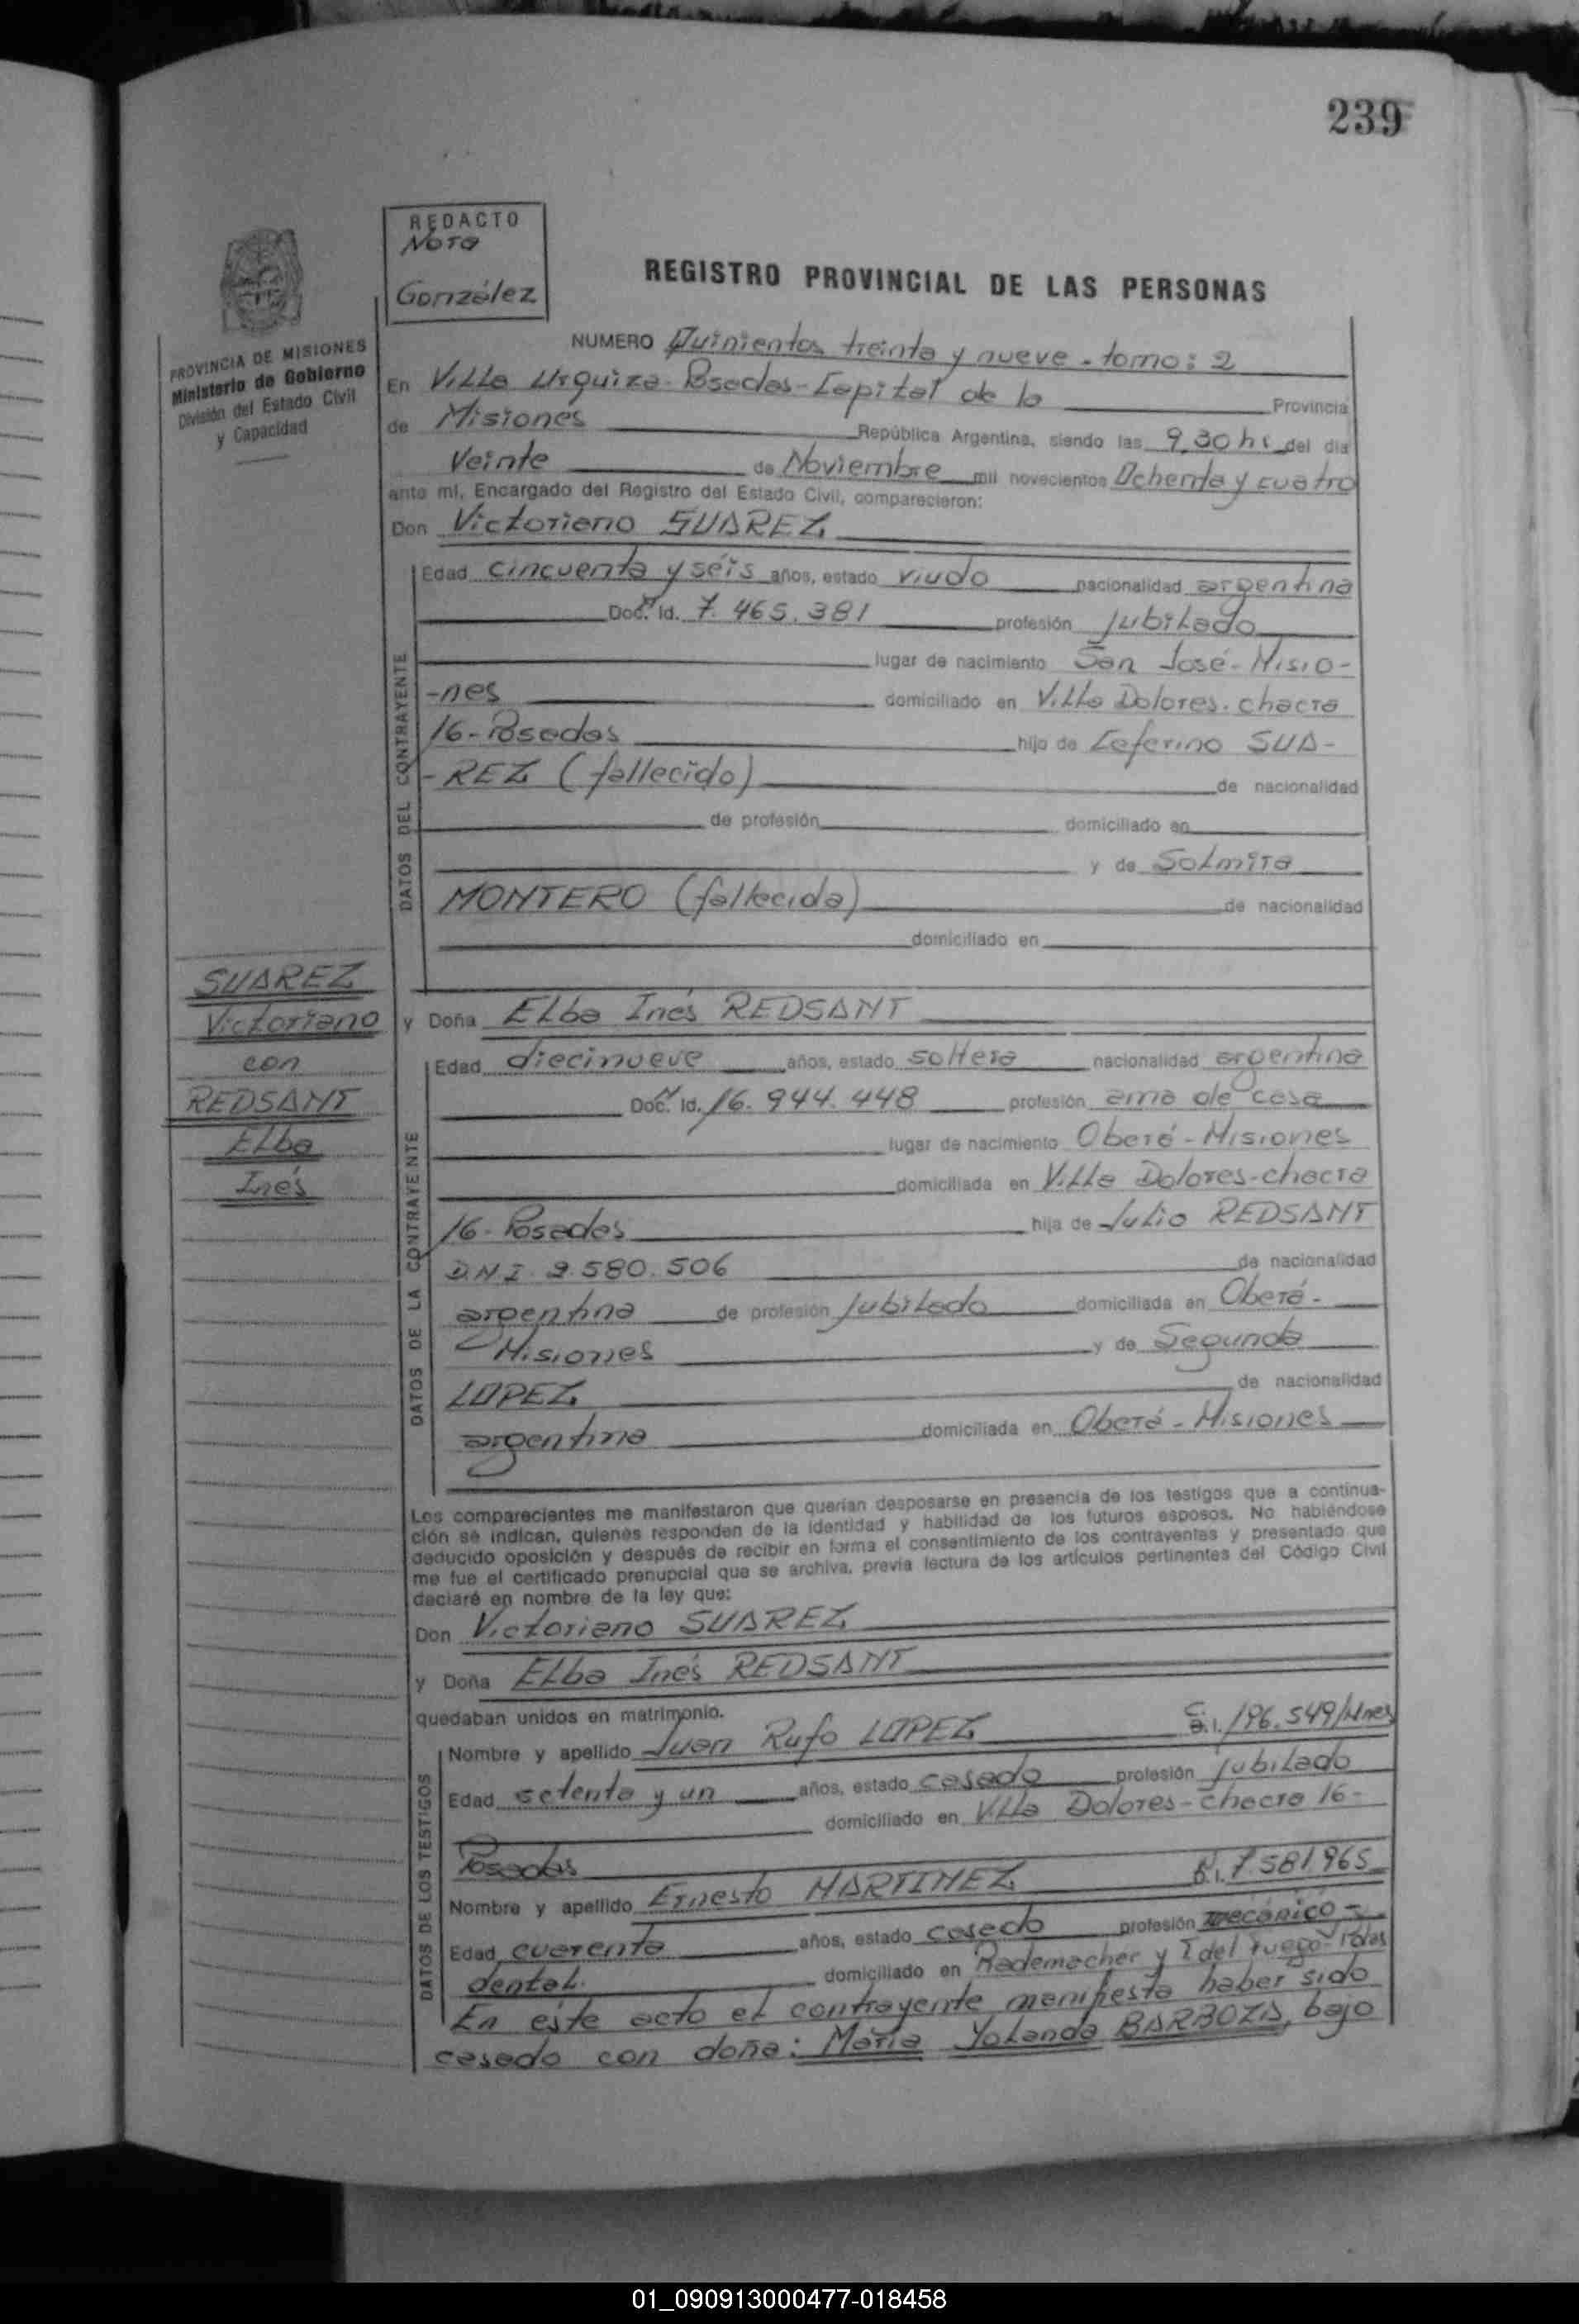 239
REDACTO
Nora
González
REGISTRO PROVINCIAL DE LAS PERSONAS
PROVINCIA DE MISIONES
Ministerio de Gobierno
División del Estado Civil
y Capacidad
NUMERO Quinientos treinta y nueve - tomo: 2
En Villa Urquiza - Posadas - Capital de la Provincia
de Misiones República Argentina, siendo las 9,30 hs del dia
Veinte de Noviembre mil novecientos Ochenta y cuatro
ante mi, Encargado del Registro del Estado Civil, comparecieron:
Don Victoriano SUAREZ
DATOS DEL CONTRAYENTE
Edad cincuenta y séis años, estado viudo nacionalidad argentina
Doc. Id. 7.465.381 profesión jubilado
lugar de nacimiento San José - Misio-
-nes domiciliado en Villa Dolores - chacra
16 - Posadas hijo de Ceferino SUA-
-REZ (fallecido) de nacionalidad
de profesión domiciliado en
y de Solmira
MONTERO (fallecida) de nacionalidad
domiciliado en
SUAREZ
Victoriano
con
REDSANT
Elba
Inés
y Doña Elba Inés REDSANT
DATOS DE LA CONTRAYENTE
Edad diecinueve años, estado soltera nacionalidad argentina
Doc. Id. 16.944.448 profesión ama de casa
lugar de nacimiento Oberá - Misiones
domiciliada en Villa Dolores - chacra
16 - Posadas hija de Julio REDSANT
D.N.I. 9.580.506 de nacionalidad
argentina de profesión jubilado domiciliada en Oberá -
Misiones y de Segunda
LOPEZ de nacionalidad
argentina domiciliada en Oberá - Misiones
Los comparecientes me manifestaron que querían desposarse en presencia de los testigos que a continua-
ción se indican, quienes responden de la identidad y habilidad de los futuros esposos. No habiéndose
deducido oposición y después de recibir en forma el consentimiento de los contrayentes y presentado que
me fue el certificado prenupcial que se archiva, previa lectura de los artículos pertinentes del Código Civil
declaré en nombre de la ley que:
Don Victoriano SUAREZ
y Doña Elba Inés REDSANT
quedaban unidos en matrimonio.
DATOS DE LOS TESTIGOS
Nombre y apellido Juan Rufo LOPEZ C.I. 196.549/Mnes
Edad setenta y un años, estado casado profesión jubilado
domiciliado en Villa Dolores - chacra 16 -
Posadas
Nombre y apellido Ernesto MARTINEZ D.I. 7581965
Edad cuarenta años, estado casado profesión mecánico -
dental. domiciliado en Rademacher y T del Fuego
En éste acto el contrayente manifiesta haber sido
casado con doña: María Yolanda BARBOZA, bajo
01_090913000477-018458